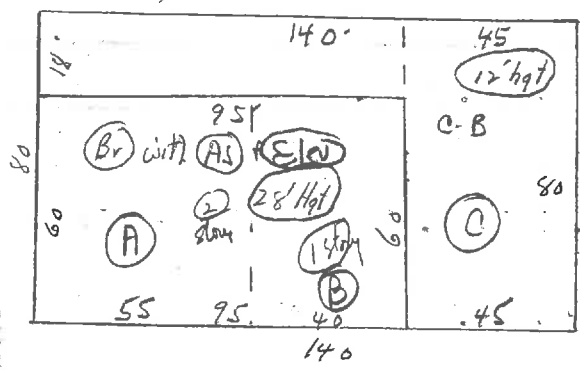 140'
45
18
12' hgt
95'
C-B
Br with AS + Elev
80
2
story
28' Hgt
80
60
A
1 story
60
C
B
55
95
40
45
140